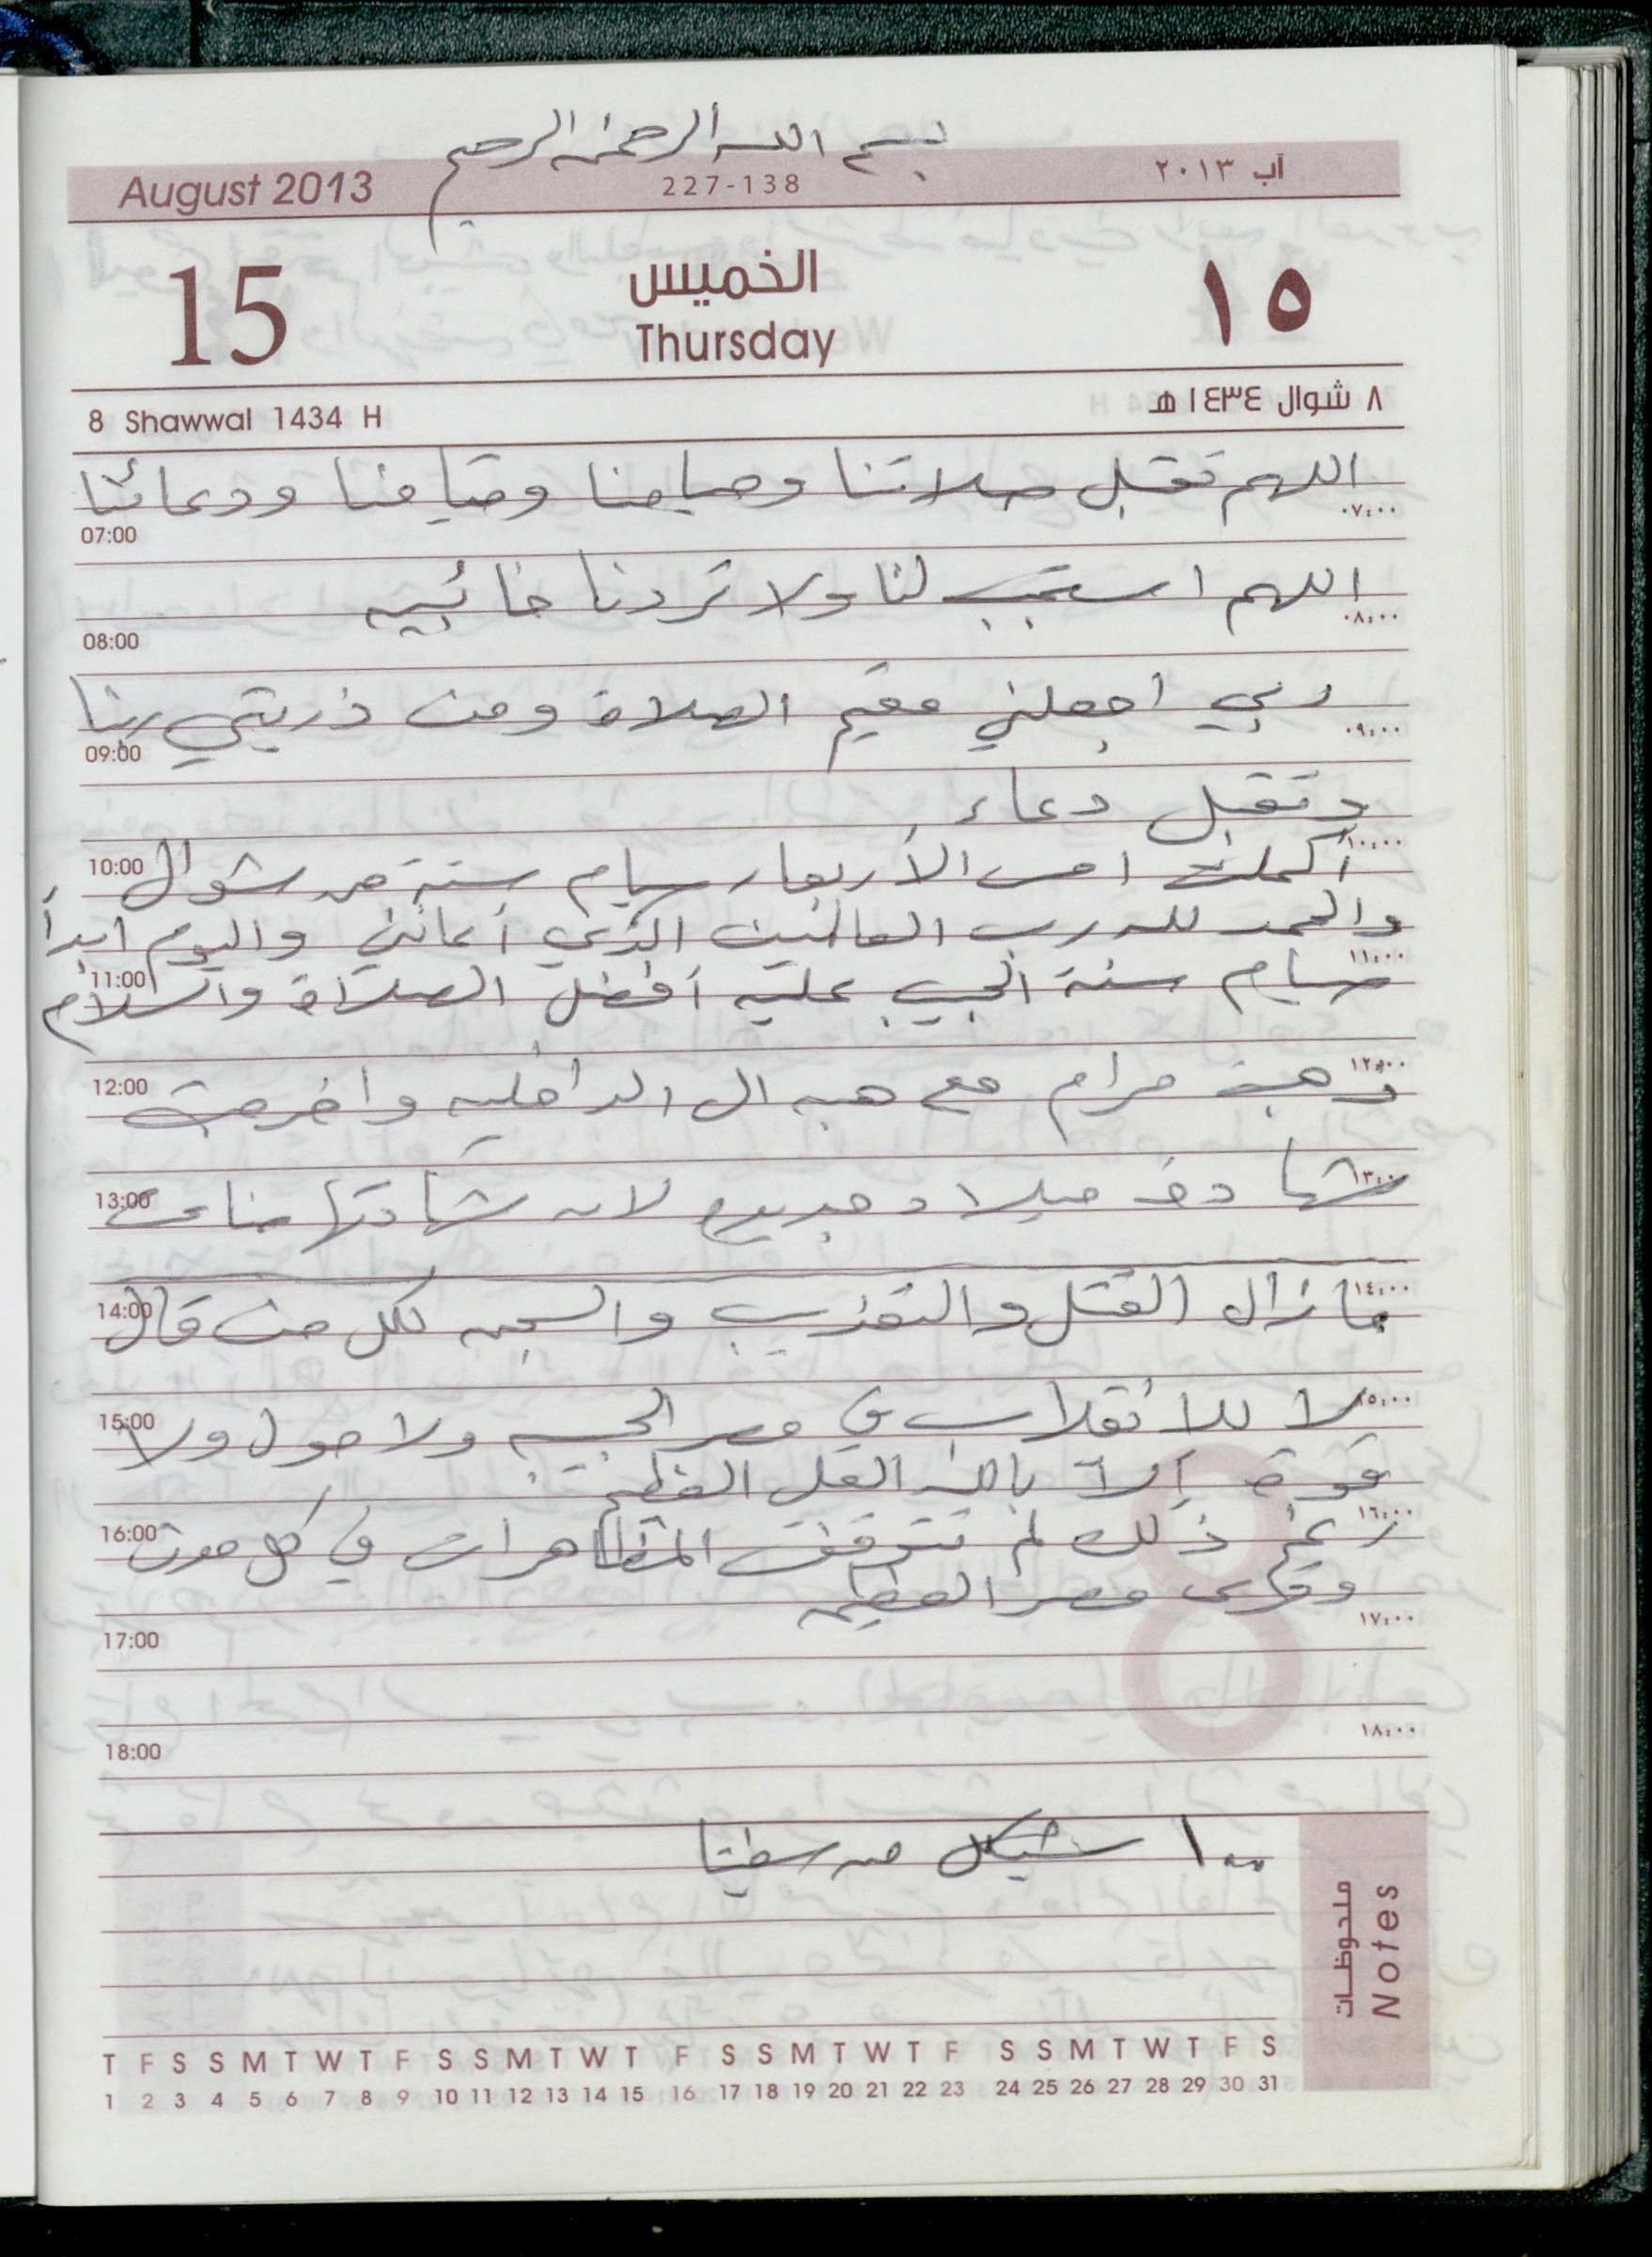 بسم الله الرحمن الرحيم
August 2013 227-138 آب ٢٠١٣
15 الخميس ١٥
Thursday
8 Shawwal 1434 H ٨ شوال ١٤٣٤ هـ
اللهم تقبل صلاتنا وصيامنا وقيامنا ودعائنا
07:00 ٠٧:٠٠
اللهم استجب لنا ولا تردنا خائبين
08:00 ٠٨:٠٠
ربي اجعلني مقيم الصلاة ومن ذريتي ربنا
09:00 ٠٩:٠٠
وتقبل دعاء
10:00 ١٠:٠٠
أكملت امس الأربعاء صيام ستة من شوال
والحمد لله رب العالمين الذي أعانني واليوم ابدأ
11:00 ١١:٠٠
صيام سنة الحبيب عليه أفضل الصلاة والسلام
12:00 ١٢:٠٠
ذهبت مرام مع هبه الى الداخليه واخرجت
13:00 ١٣:٠٠
شهادة ميلاد جديده لان شهادتها ضاعت
14:00 ١٤:٠٠
ما زال القتل والتعذيب والسجن لكل من قال
15:00 ١٥:٠٠
لا للانقلاب في مصر الحبيبه ولا حول ولا
قوة إلا بالله العلي العظيم
16:00 ١٦:٠٠
رغم ذلك لم تتوقف المظاهرات في كل مدن
وقرى مصر العظيمه
17:00 ١٧:٠٠
18:00 ١٨:٠٠
١٠٠ شيكل من
ملحوظات
Notes
T F S S M T W T F S S M T W T F S S M T W T F S S M T W T F S
1 2 3 4 5 6 7 8 9 10 11 12 13 14 15 16 17 18 19 20 21 22 23 24 25 26 27 28 29 30 31